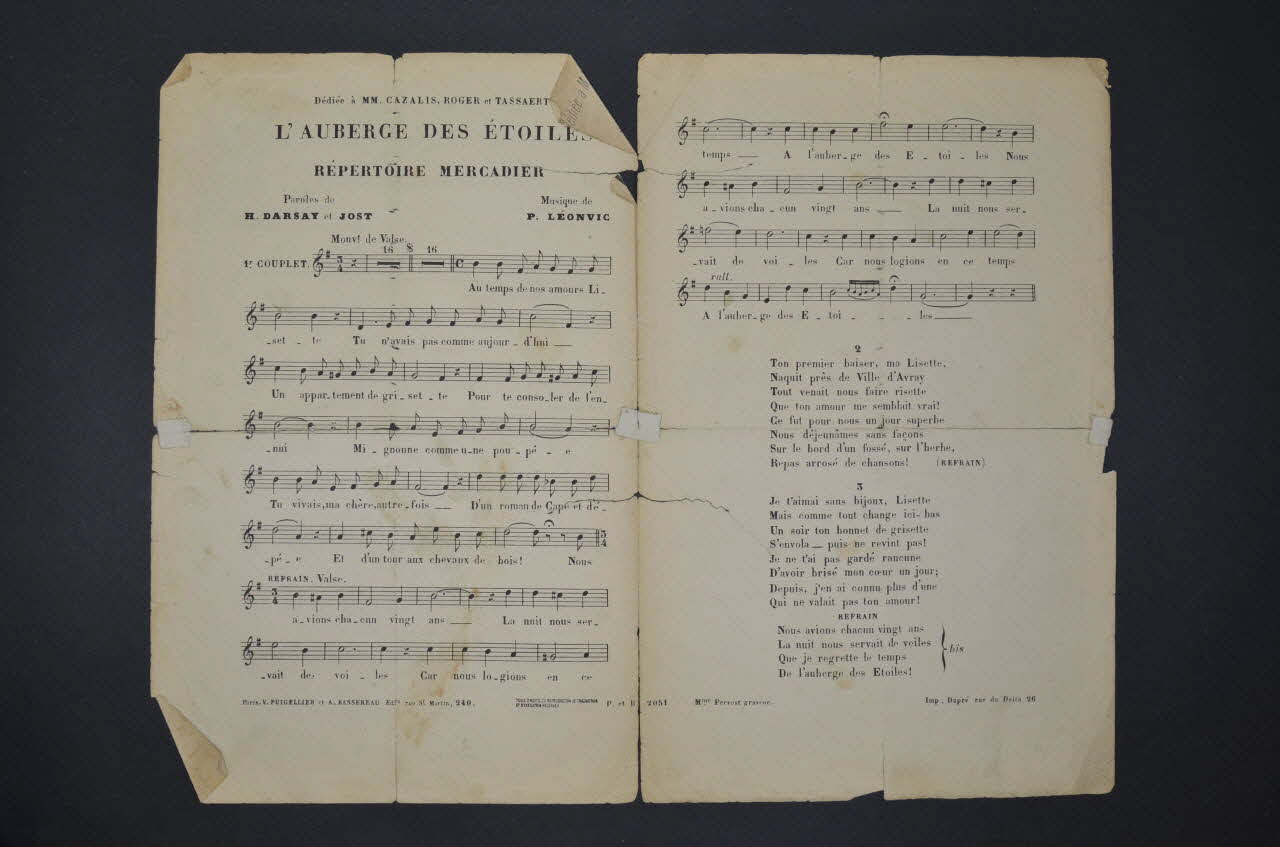 Dédiée à MM. CAZALIS, ROGER et TASSAERT
L'AUBERGE DES ÉTOILES
RÉPERTOIRE MERCADIER
Paroles de
H. DARSAY et JOST
Musique de
P. LÉONVIC
Mouvt de Valse.
16 16
1er COUPLET.
Au temps de nos amours Li-
-set-te Tu n'avais pas comme aujour-d'hui
Un appar-tement de gri-set-te Pour te conso-ler de l'en-
-nui Mi-gnonne comme u-ne pou-pé-e
Tu vivais, ma chère, autre-fois D'un roman de Cape et d'é-
-pé-e Et d'un tour aux chevaux de bois! Nous
REFRAIN. Valse.
a-vions cha-cun vingt ans La nuit nous ser-
-vait de voi-les Car nous lo-gions en ce
PARIS, V. PUIGELLIER et A. BASSEREAU Edrs rue St Martin, 240.
TOUS DROITS DE REPRODUCTION DE TRADUCTION
ET D'EXÉCUTION RÉSERVÉS
P. et B. 2051
temps A l'auber-ge des E-toi-les Nous
a-vions cha-cun vingt ans La nuit nous ser-
-vait de voi-les Car nous logions en ce temps
rall.
A l'auber-ge des E-toi-les
2
Ton premier baiser, ma Lisette,
Naquit près de Ville d'Avray
Tout venait nous faire risette
Que ton amour me semblait vrai!
Ce fut pour nous un jour superbe
Nous déjeunâmes sans façons
Sur le bord d'un fossé, sur l'herbe,
Repas arrosé de chansons! (REFRAIN)
3
Je t'aimai sans bijoux, Lisette
Mais comme tout change ici-bas
Un soir ton bonnet de grisette
S'envola — puis ne revint pas!
Je ne t'ai pas gardé rancune
D'avoir brisé mon cœur un jour;
Depuis, j'en ai connu plus d'une
Qui ne valait pas ton amour!
REFRAIN
Nous avions chacun vingt ans
La nuit nous servait de voiles
Que je regrette le temps
De l'auberge des Etoiles!
bis
Mme Pervost graveur.
Imp. Dupré rue du Delta 26